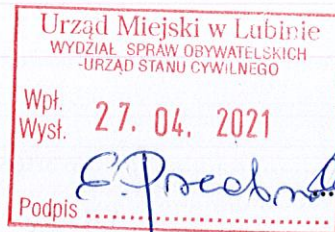 Urząd Miejski w Lubinie
WYDZIAŁ SPRAW OBYWATELSKICH
-URZĄD STANU CYWILNEGO
Wpł.
Wysł. 27. 04. 2021
Podpis ..................